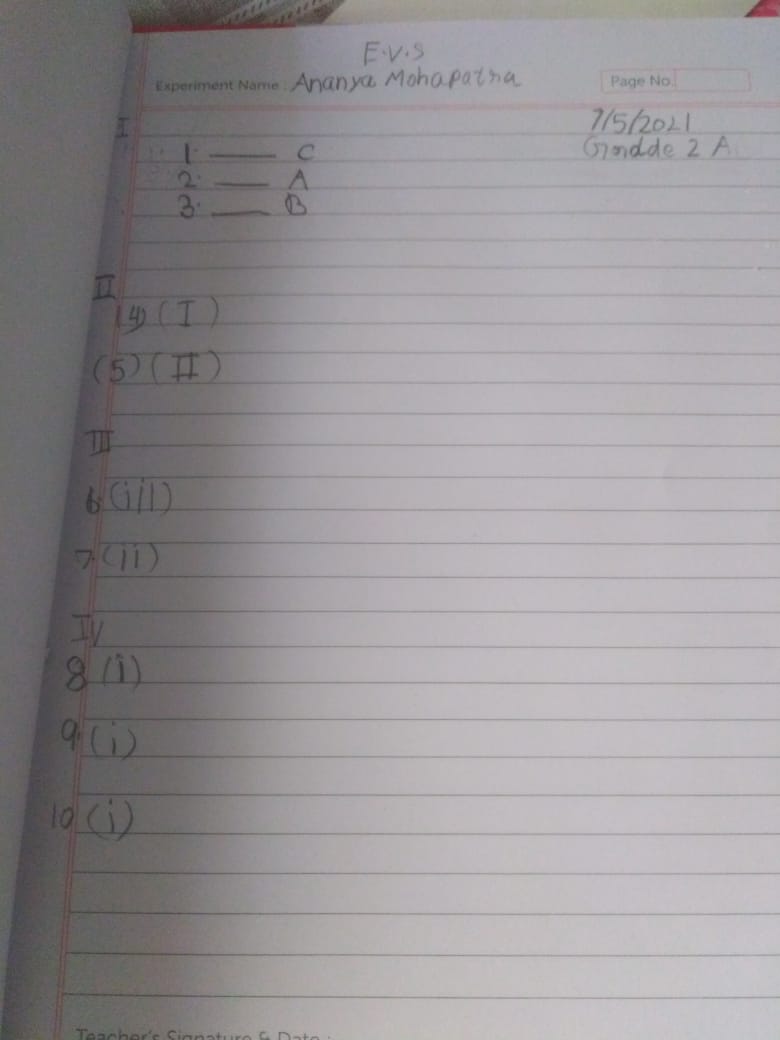 E.V.S
Experiment Name : Ananya Mohapatra
Page No.
7/5/2021
Gradde 2 A
I
1. — C
2. — A
3. — B
II
(4) (I)
(5) (II)
III
6. (iii)
7. (ii)
IV
8 (i)
9. (i)
10 (i)
Teacher's Signature & Date :